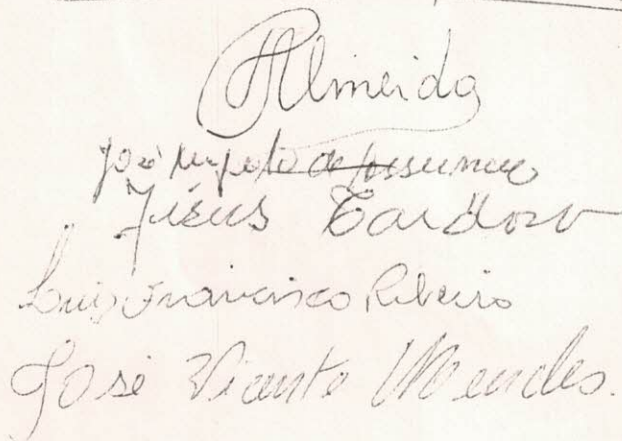 Almeida
José
Jesus Cardoso
Luis Francisco Ribeiro
José Vicente Mendes.